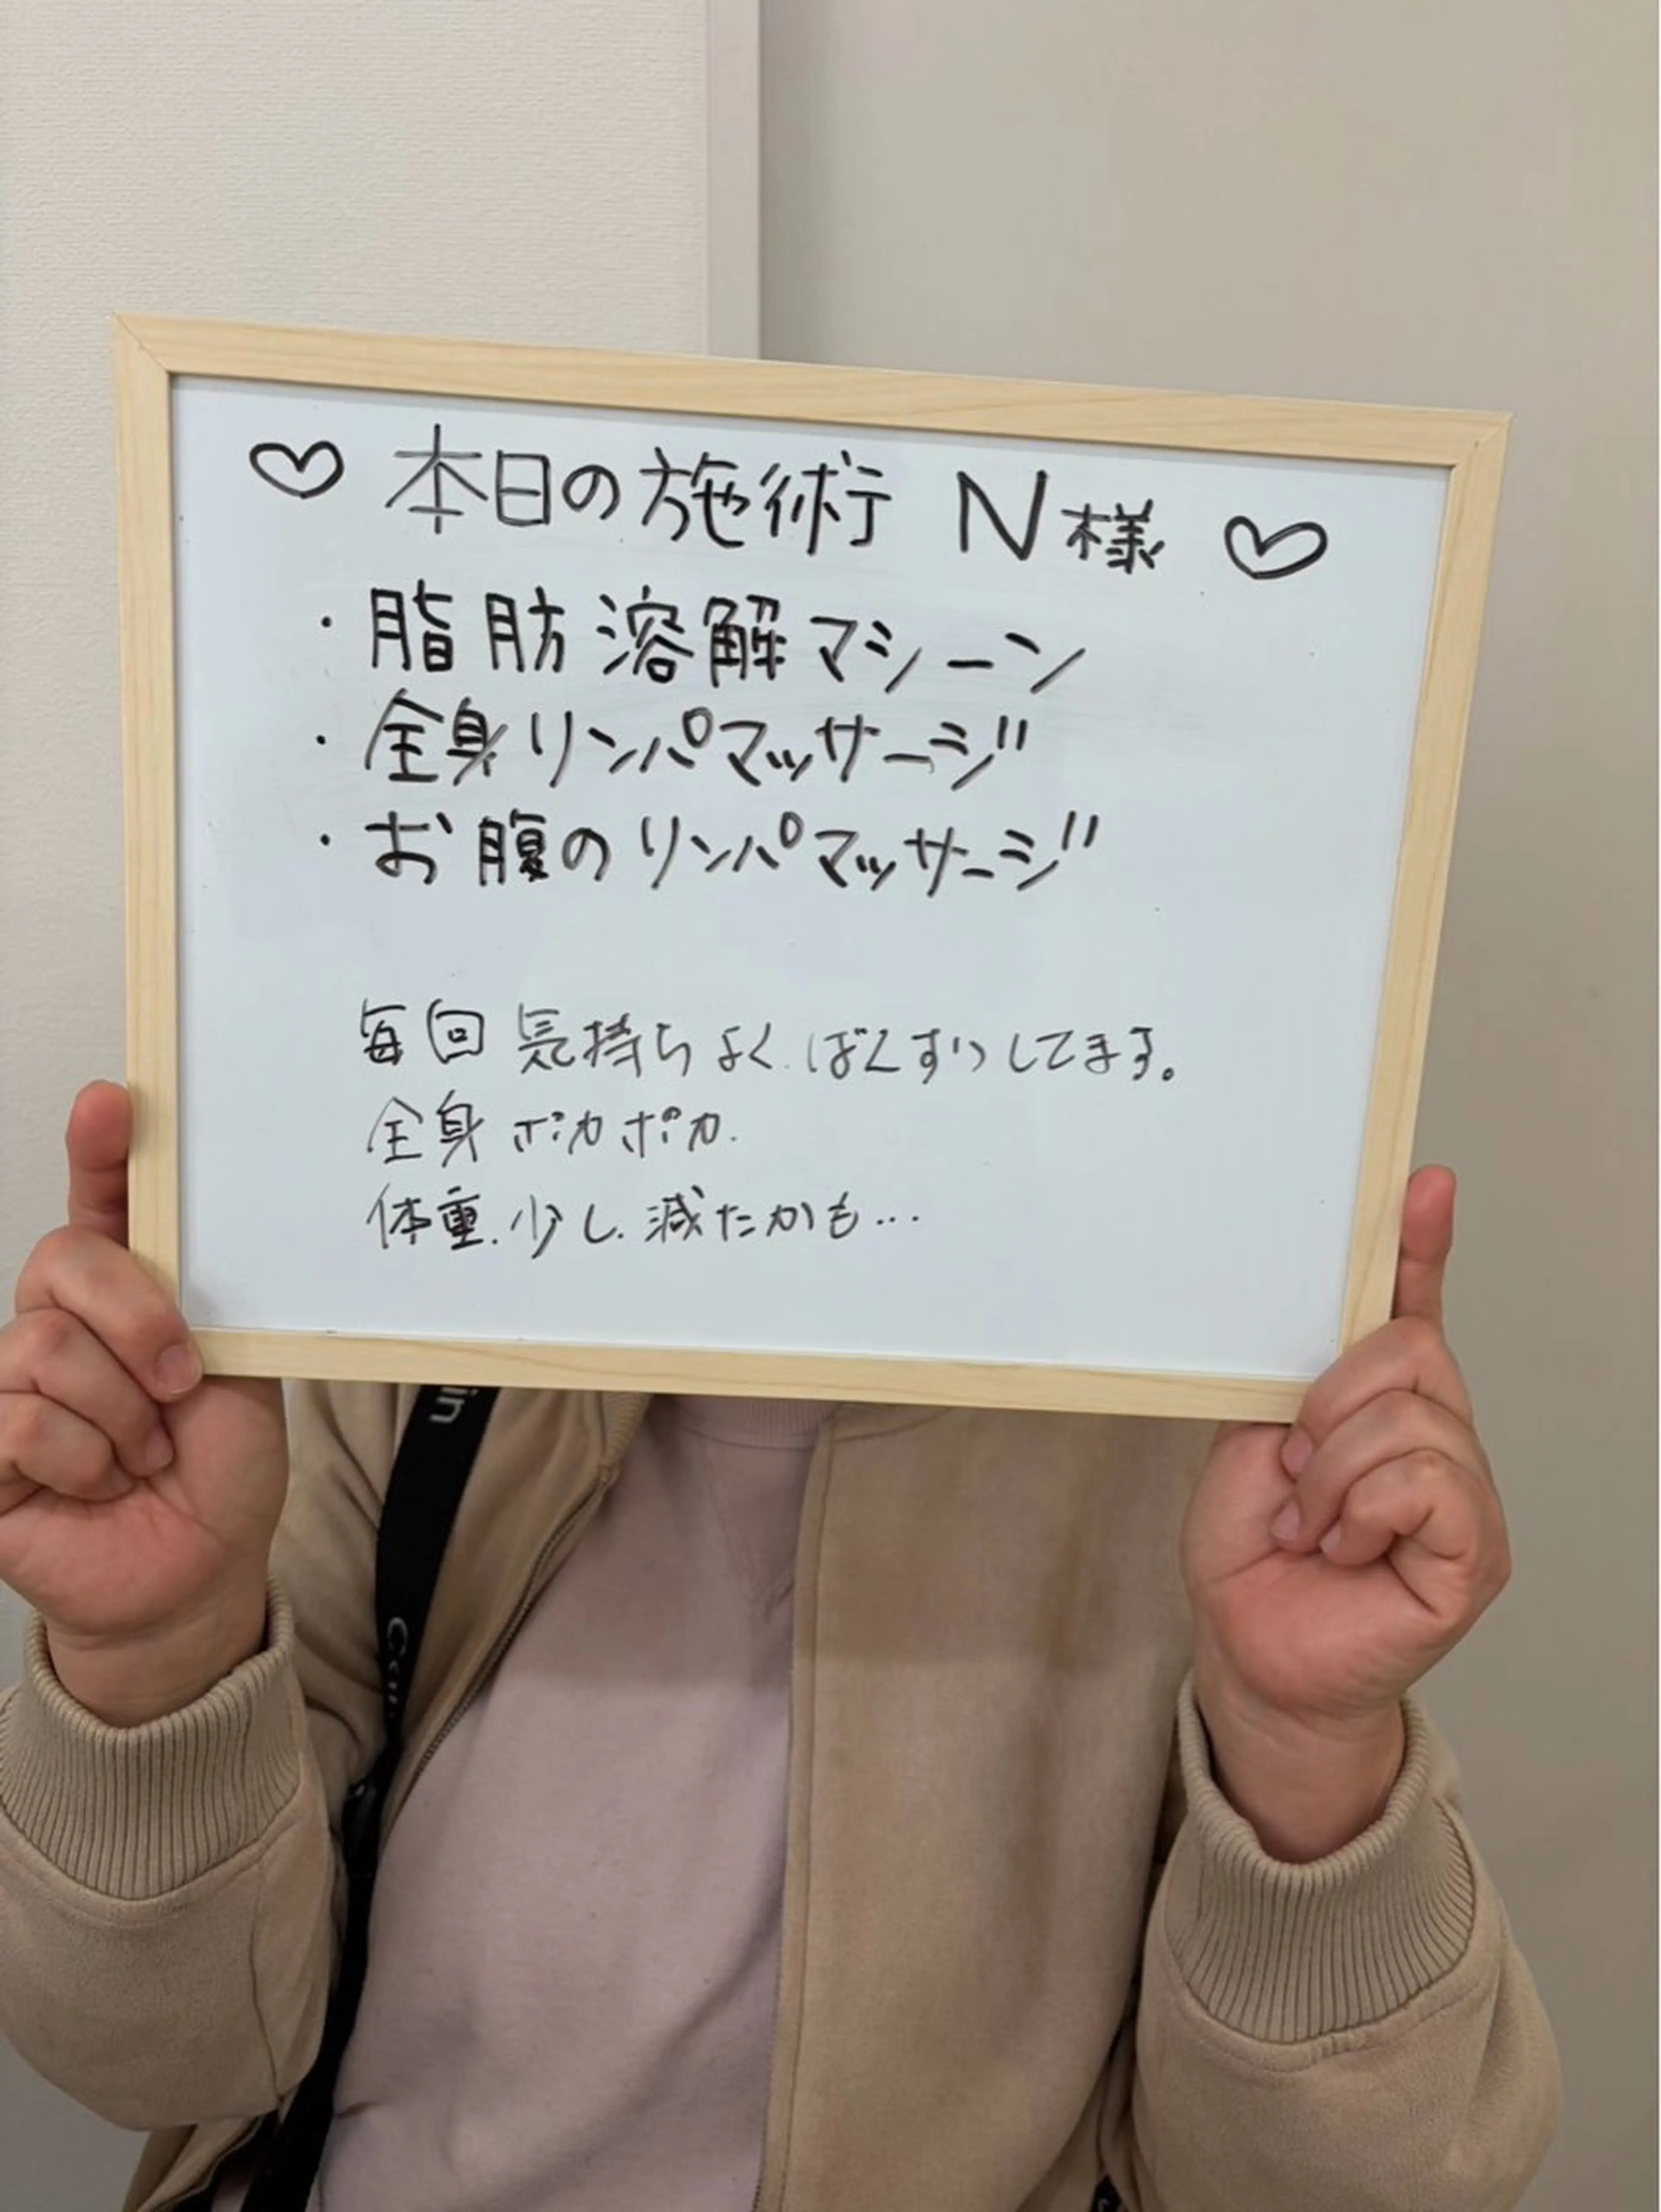 ♡ 本日の施術 N様 ♡
・脂肪溶解マシーン
・全身リンパマッサージ
・お腹のリンパマッサージ
毎回気持ちよく してます。
全身ポカポカ.
体重.少し.減たかも…
in